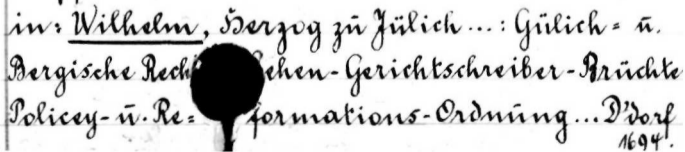 in: Wilhelm, Herzog zū Jülich...: Gülich= ū.
Bergische Rech ehen-Gerichtschreiber-Brüchte
Policey-ū. Re= formations-Ordnūng... D'dorf
1694.